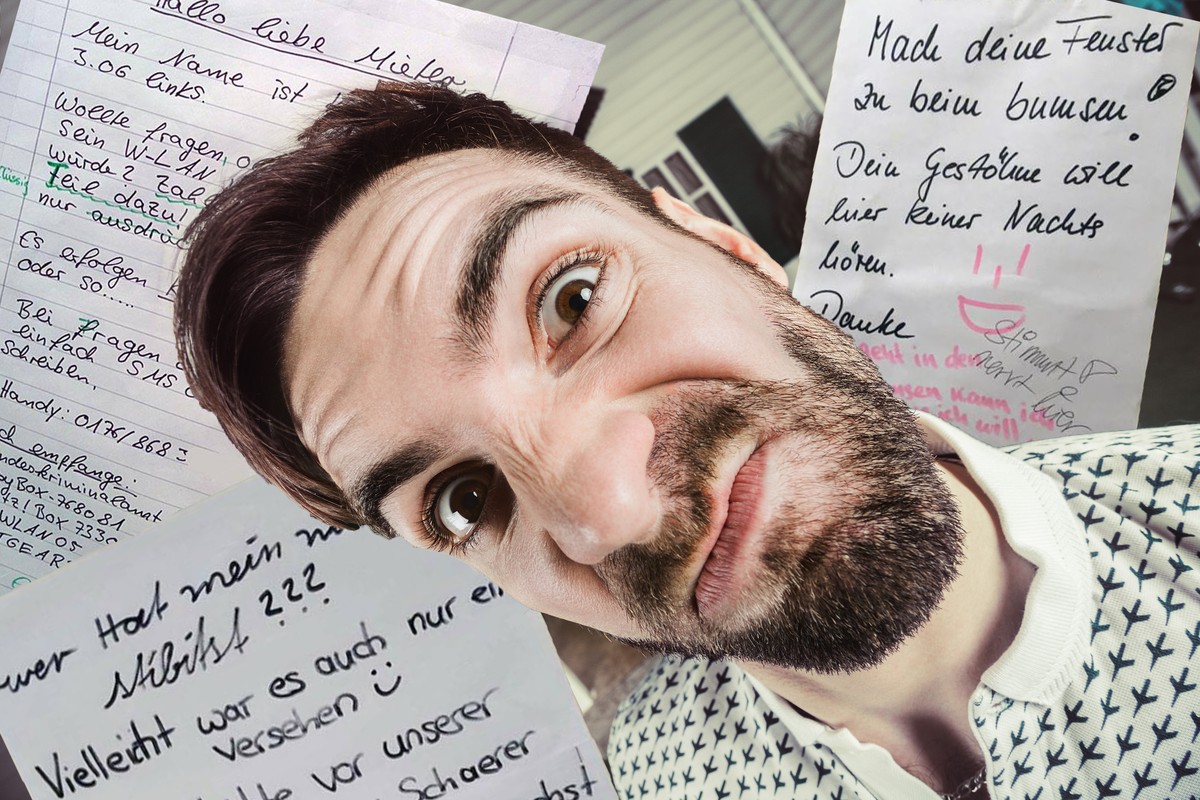 Hallo liebe Mieter,
Mein Name ist
3.06 links.
Wollte fragen, o
sein W-LAN
würde? Zah
Teil dazu!
nur ausdrüc
Es erfolgen
oder so.....
Bei Fragen
einfach SMS
schreiben.
Handy: 0176/868
empfange:
ndeskriminalamt
yBox-768081
tz! Box 7330
WLAN 05
TGEAR
Mach deine Fenster
zu beim bumsen
Dein Gestöhne will
hier keiner Nachts
hören.
Danke
geht in den
msen kann ich
ich will
Stimmt
nervt
hier
wer Hat mein
stibitst ???
Vielleicht war es auch nur ein
versehen
vor unserer
Schaerer
bst